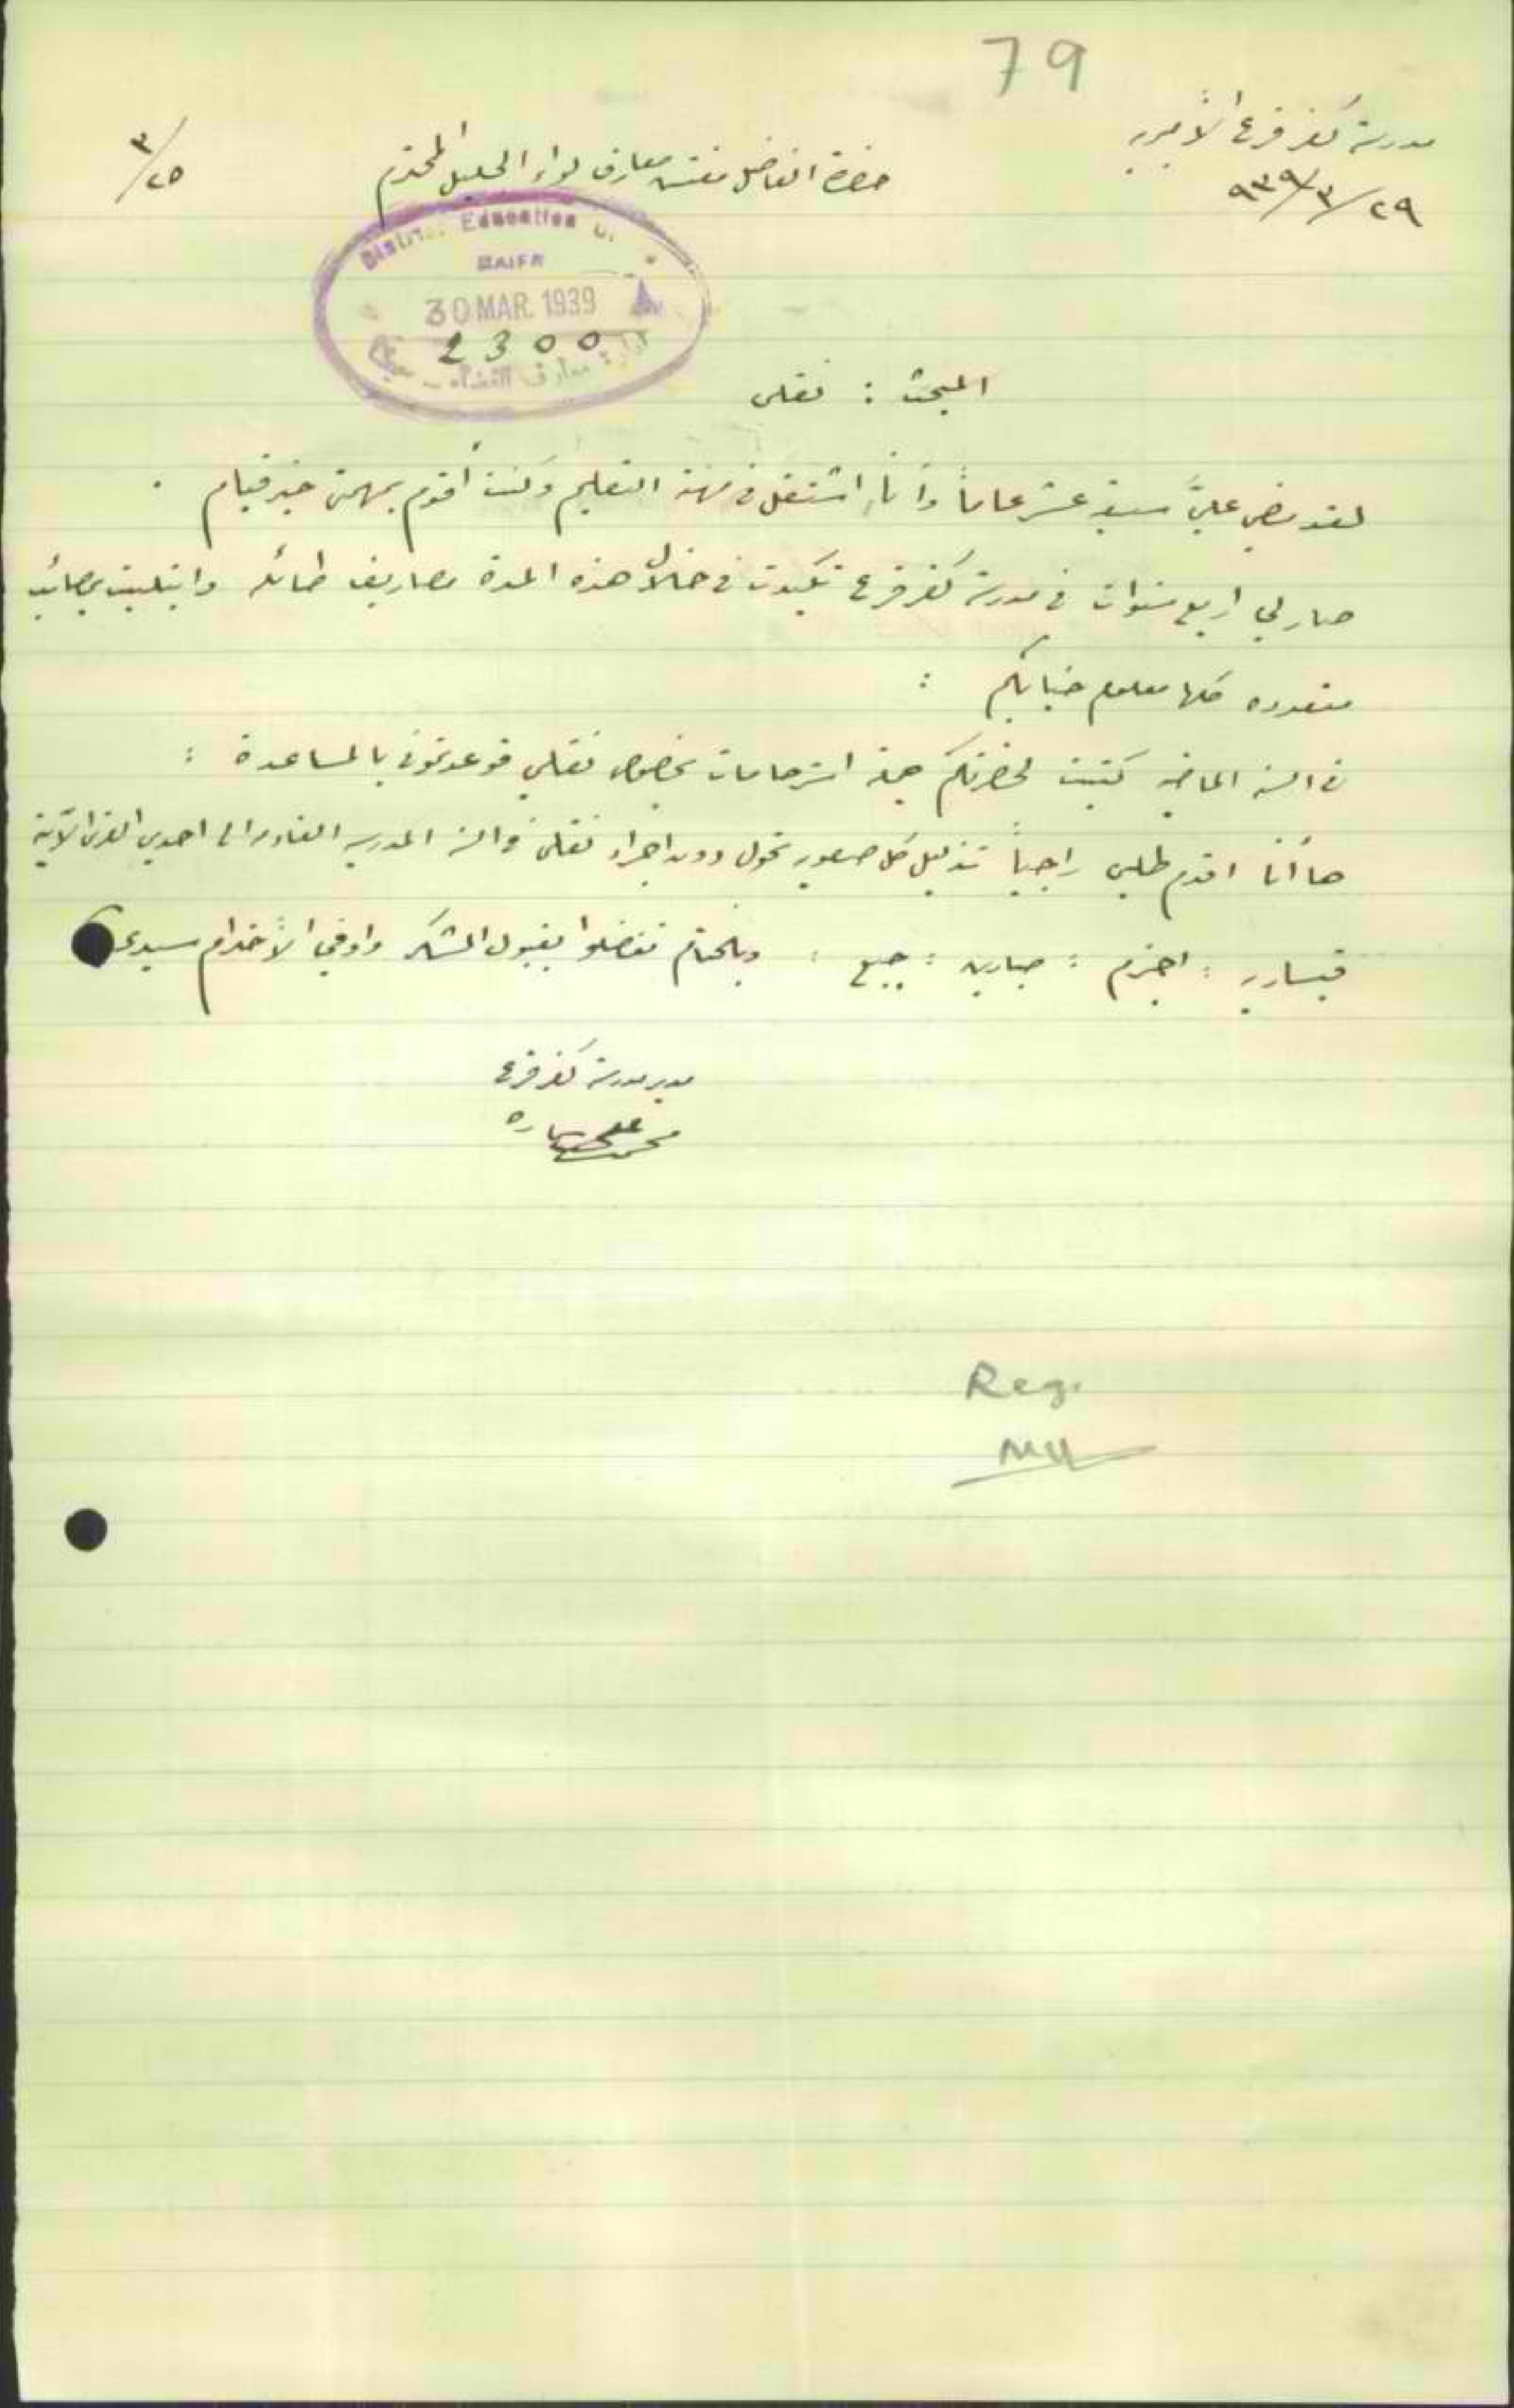 79
مدرسة كفر قرع الأميرية
٢٩/٣/٩٣٩
حضرة الفاضل مفتش معارف لواء الجليل المحترم
٣/٢٥
District Education
HAIFA
30 MAR. 1939
2300
ادارة معارف القضاء
المبحث : نقلي
لقد مضى عليَّ سبعة عشر عاماً وأنا اشتغل في مهنة التعليم وكنت أقوم بمهمتي خير قيام .
صار لي اربع سنوات في مدرسة كفر قرع تكبدت في خلال هذه المدة مصاريف طائله وابتليت بمصائب
متعدده كلها معلوم جنابكم :
في السنة الماضيه كتبت لحضرتكم جملة استرحامات بخصوص نقلي فوعدتموني بالمساعدة :
ها أنا اقدم طلبي راجياً تذليل كل صعوبه تحول دون اجراء نقلي في السنة المدرسيه القادمه الى احدى القرى الآتية
قيساريه : اجزم : صبارين : جبع : وبالختام تفضلوا بقبول الشكر واوفى الأحترام سيدي
مدير مدرسة كفر قرع
محمد علي
Reg.